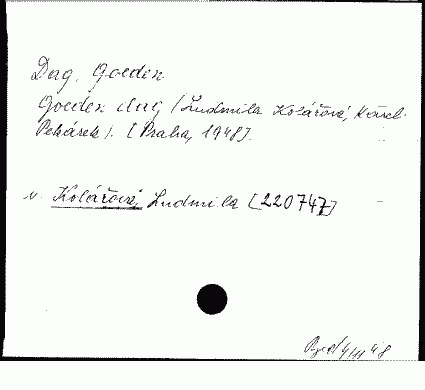 Dag, Goeden
Goeden dag /Ludmila Kolářová, Karel
Pekárek/. [Praha, 1948].
v. Kolářová, Ludmila [220747]